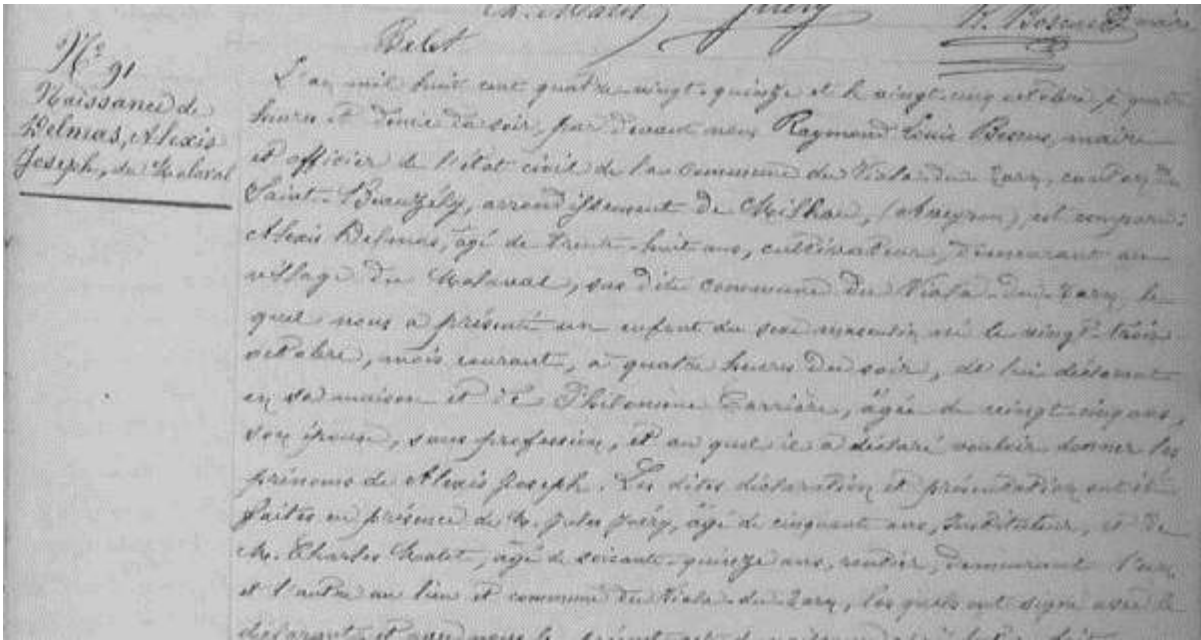 Ch. Malet Juéry R. Boscus maire
Belet
N° 91
Naissance de
Delmas, Alexis
Joseph, du Malaval
L'an mil huit cent quatre-vingt-quinze et le vingt-cinq octobre, à quatre
heures et demie du soir, par devant nous Raymond Louis Boscus, maire
et officier de l'état civil de la commune du Viala-du-Tarn, canton de
Saint-Beauzély, arrondissement de Milhau, (Aveyron), est comparu:
Alexis Delmas, âgé de trente-huit ans, cultivateur, demeurant au
village du Malaval, sus dite commune du Viala-du-Tarn, le
quel nous a présenté un enfant du sexe masculin né le vingt-trois
octobre, mois courant, à quatre heures du soir, de lui déclarant
en sa maison et de Philomène Carrière, âgée de vingt-cinq ans,
son épouse, sans profession, et au quel il a déclaré vouloir donner les
prénoms de Alexis Joseph. Les dites déclaration et présentation ont été
faites en présence de M. Jules Juéry, âgé de cinquante ans, instituteur, et de
M. Charles Malet, âgé de soixante-quinze ans, rentier, demeurant l'un
et l'autre au lieu et commune du Viala-du-Tarn, les quels ont signé avec le
déclarant et avec nous le présent acte de naissance